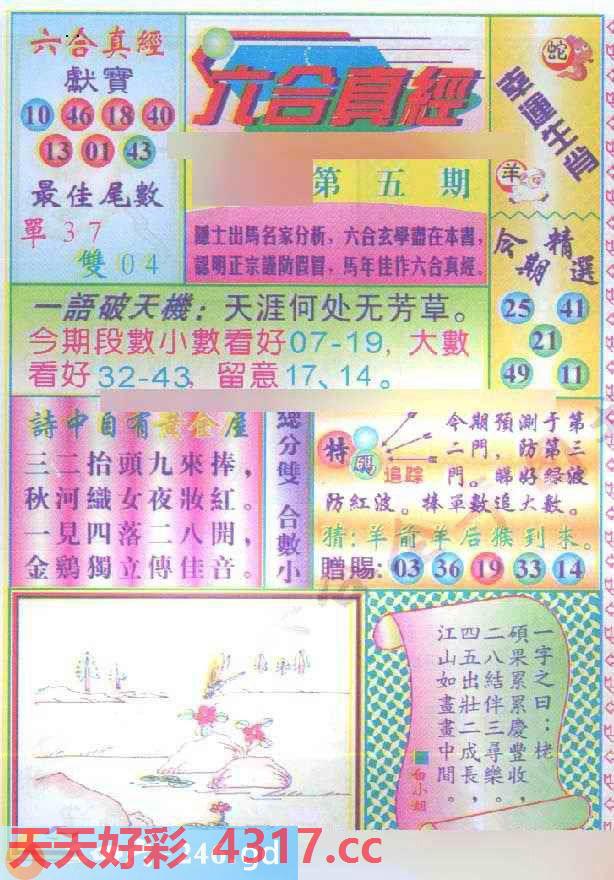 六合真經
獻寶
10 46 18 40
13 01 43
最佳尾數
單 3 7
雙 0 4
六合真經
第五期
隱士出馬名家分析，六合玄學盡在本書，
認明正宗謹防假冒，馬年佳作六合真經。
蛇
幸運生肖
羊
今期精選
25 41
21
49 11
一語破天機：天涯何处无芳草。
今期段數小數看好07-19，大數
看好32-43，留意17、14。
詩中自有黃金屋
三二抬頭九來捧，
秋河織女夜妝紅。
一見四落二八開，
金鷄獨立傳佳音。
總分雙 合數小
特碼
追踪
今期預測于第
二門，防第三
門。睇好綠波
防紅波。捧單數追大數。
猜：羊前羊后猴到来。
贈賜：03 36 19 33 14
一字之曰：栳
碩果累累慶豐收，
二八結伴三尋樂。
四五出壯二成長，
江山如畫畫中間。
白小姐
天天好彩 4317.cc
246 gd